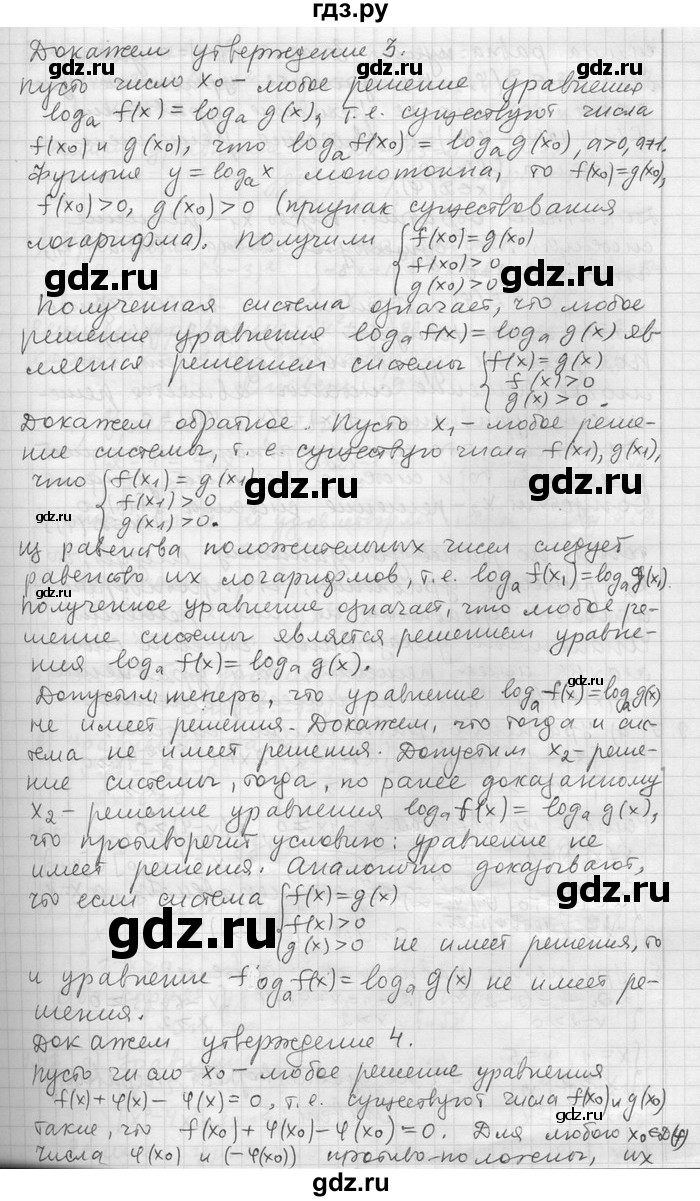 гдз.ру
Докажем утверждение 3.
gdz.ru gdz.ru gdz.ru
пусть число x₀ – любое решение уравнения
logₐ f(x) = logₐ g(x), т.е. существуют числа
f(x₀) и g(x₀), что logₐ f(x₀) = logₐ g(x₀), a>0, a≠1.
Функция y = logₐ x монотонна, то f(x₀) = g(x₀),
f(x₀) > 0, g(x₀) > 0 (признак существования
логарифма). Получили { f(x₀) = g(x₀)
f(x₀) > 0
g(x₀) > 0
gdz.ru gdz.ru
Полученная система означает, что любое
решение уравнения logₐ f(x) = logₐ g(x) яв-
ляется решением системы { f(x) = g(x)
f(x) > 0
g(x) > 0.
Докажем обратное. Пусть x₁ – любое реше-
ние системы, т. е. существую числа f(x₁), g(x₁),
что { f(x₁) = g(x₁)
f(x₁) > 0
g(x₁) > 0.
gdz.ru gdz.ru gdz.ru
из равенства положительных чисел следует
равенство их логарифмов, т.е. logₐ f(x₁) = logₐ g(x₁).
Полученное уравнение означает, что любое ре-
шение системы является решением уравне-
ния logₐ f(x) = logₐ g(x).
gdz.ru
Допустим теперь, что уравнение logₐ f(x) = logₐ g(x)
не имеет решения. Докажем, что тогда и сис-
тема не имеет решения. Допустим x₂ – реше-
ние системы, тогда, по ранее доказанному
x₂ – решение уравнения logₐ f(x) = logₐ g(x),
что противоречит условию: уравнение не
имеет решения. Аналогично доказывают,
что если система { f(x) = g(x)
f(x) > 0
g(x) > 0 не имеет решения, то
gdz.ru gdz.ru
и уравнение logₐ f(x) = logₐ g(x) не имеет ре-
шения.
Докажем утверждение 4.
пусть число x₀ – любое решение уравнения
f(x) + φ(x) – φ(x) = 0, т.е. существуют числа f(x₀) и g(x₀)
gdz.ru gdz.ru gdz.ru
такие, что f(x₀) + φ(x₀) – φ(x₀) = 0. Для любого x₀ ∈ D(φ)
числа φ(x₀) и (–φ(x₀)) противоположены, их